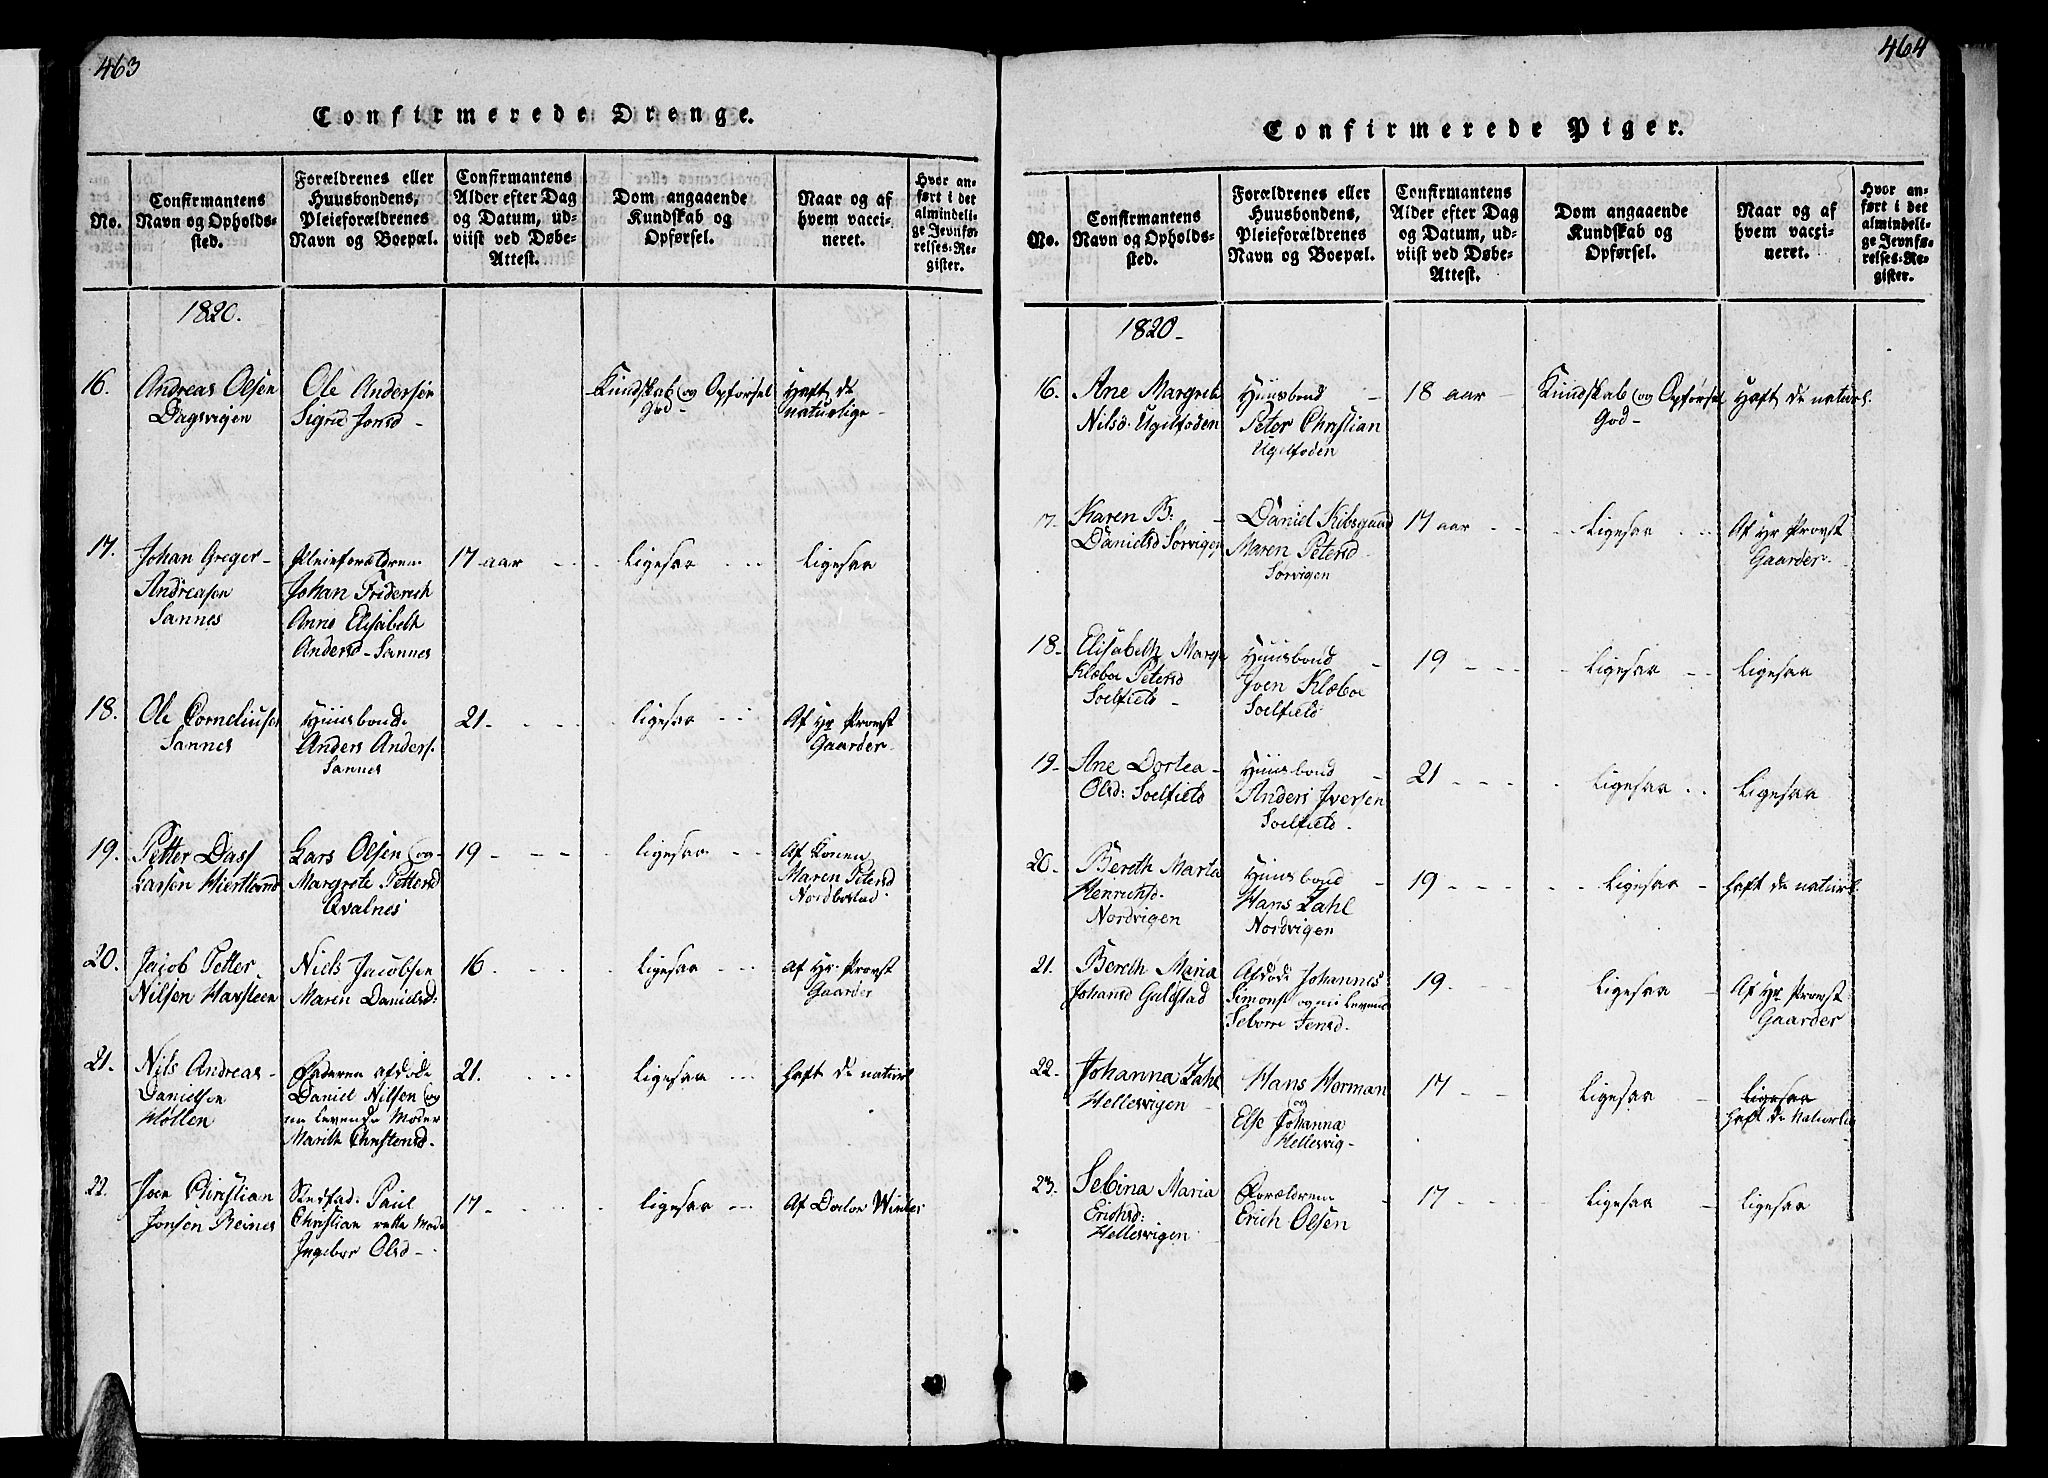 463
Confirmerede Drenge.
No.
Confirmantens
Navn og Opholds-
sted.
Forældrenes eller
Huusbondens,
Pleieforældrenes
Navn og Boepæl.
Confirmantens
Alder efter Dag
og Datum, ud-
viist ved Døbe-
Attest.
Dom angaaende
Kundskab og
Opførsel.
Naar og af
hvem vacci-
neret.
Hvor an-
ført i det
almindeli-
ge Jevnfø-
relses-Re-
gister.
1820.
16.
Andreas Olsen
Dagsvigen
Ole Andersen
Sigrid Jonsd -
Kundskab og Opførsel
God -
Haft de
naturlige -
17.
Johan Greger -
Andreasen
Sannes
Pleieforældrene
Johan Friderich
Anne Elisabeth
Andersd - Sannes
17 aar
ligesaa
ligesaa
18.
Ole Corneliusen
Sannes
Huusbonde
Anders Anders.
Sannes
21
ligesaa
Af Hr Provst
Gaarder
19.
Petter Dass
Larsen Hiertland
Lars Olsen og
Margrete Pettersd
Qvalnes
19
ligesaa
Af Konen
Maren Petersd
Nordbostad
20.
Jacob Petter
Nilsen Havsteen
Niels Jacobsen
Maren Danielsd:
16.
ligesaa
af Hr. Provst
Gaarder
21.
Nils Andreas -
Danielsen
Møllen
Faderen afdøde
Daniel Nilsen og
nu levende Moder
Marith Christensd.
21.
ligesaa
haft de naturl
22.
Christian
Jonsen Reines
Stedfad: Paul
Christian rette Mode
Ingebor Olsd -
17.
ligesaa
Af Doctor
464
Confirmerede Piger.
No.
Confirmantens
Navn og Opholds-
sted.
Forældrenes eller
Huusbondens,
Pleieforældrenes
Navn og Boepæl.
Confirmantens
Alder efter Dag
og Datum, ud-
viist ved Døbe-
Attest.
Dom angaaende
Kundskab og
Opførsel.
Naar og af
hvem vacci-
neret.
Hvor an-
ført i det
almindeli-
ge Jevnfø-
relses-Re-
gister.
1820 -
16.
Ane Margreth
Nilsd. Ugelfoden
Huusbond -
Peter Christian
Ugelfoden
18 aar -
Kundskab og Opførsel
God -
Haft de naturl.
17.
Karen B: -
Danielsd Sørvigen
Daniel Kibsgaard
Maren Petersd
Sørvigen
17 aar
ligesaa
Af Hr Provst
Gaarder.
18.
Elisabeth
Klæboe Petersd
Soelfield -
Huusbond -
Iven Klæboe
Soelfield
19
ligesaa
ligesaa
19.
Ane Dortea -
Olsd: Soelfield
Huusbond -
Anders Iversen
Soelfield.
21
ligesaa
ligesaa
20.
Bereth Marta
Henrichsd.
Nordvigen
Huusbond -
Hans Zahl
Nordvigen
19
ligesaa -
haft de naturl.
21.
Bereth Maria
Johansd Guldstad
Afdøde Johannes
Simons. og nu levende
Jensd.
19.
ligesaa -
Af Hr Provst
Gaarder
22.
Johanna Zahl
Hellesvigen -
Hans Herman
og
Else Johanna
Hellesvig -
17
ligesaa -
ligesaa
haft de Naturlig
23.
Sebina Maria
Erichsd:
Hellesvigen
Forældrene -
Erich Olsen
17
ligesaa -
ligesaa